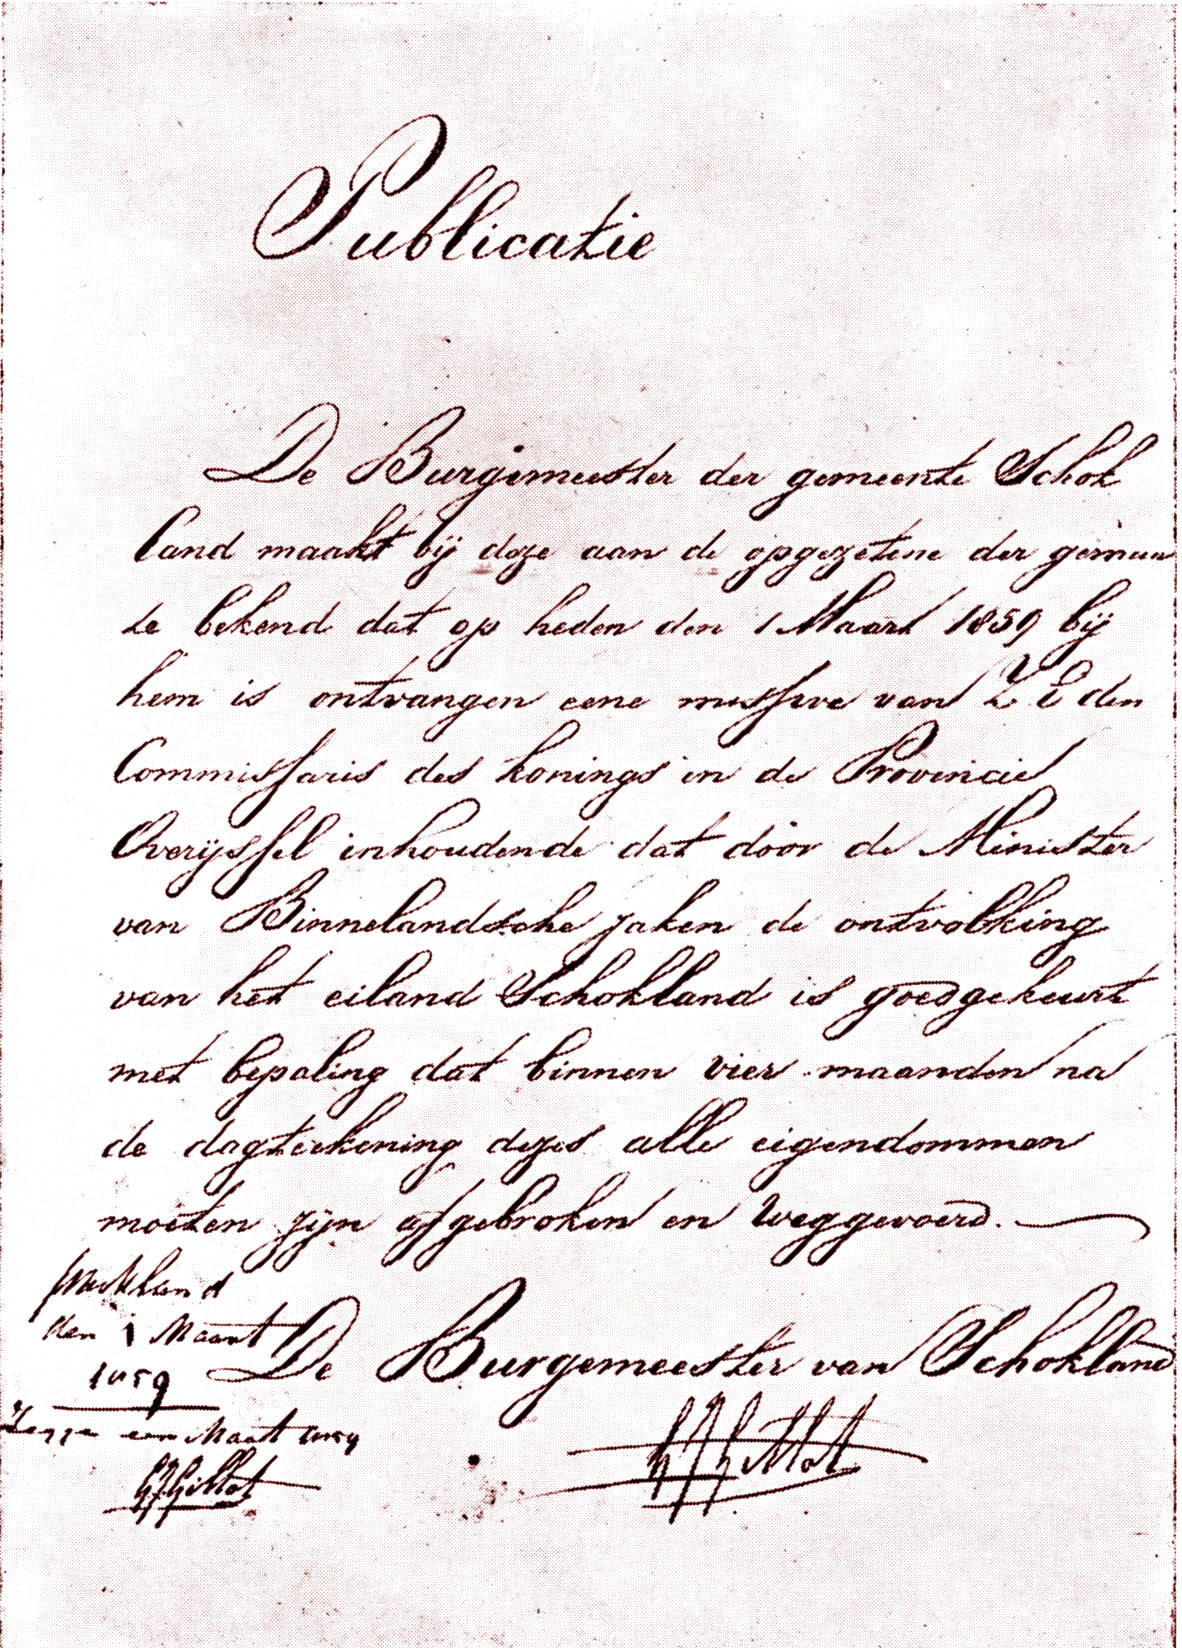 Publicatie
De Burgemeester der gemeente Schok
land maakt bij deze aan de opgezetene der gemeen
te bekend dat op heden den 1 Maart 1859 bij
hem is ontvangen eene missive van Z E den
Commissaris des konings in de Provincie
Overijssel inhoudende dat door de Minister
van Binnelandsche zaken de ontvolking
van het eiland Schokland is goedgekeurt
met bepaling dat binnen vier maanden na
de dagteekening dezes alle eigendommen
moeten zijn afgebroken en weggevoerd.
Schokland
den 1 Maart
1859
De Burgemeester van Schokland
Zegge een Maart 1859
GJGillot
GJGillot